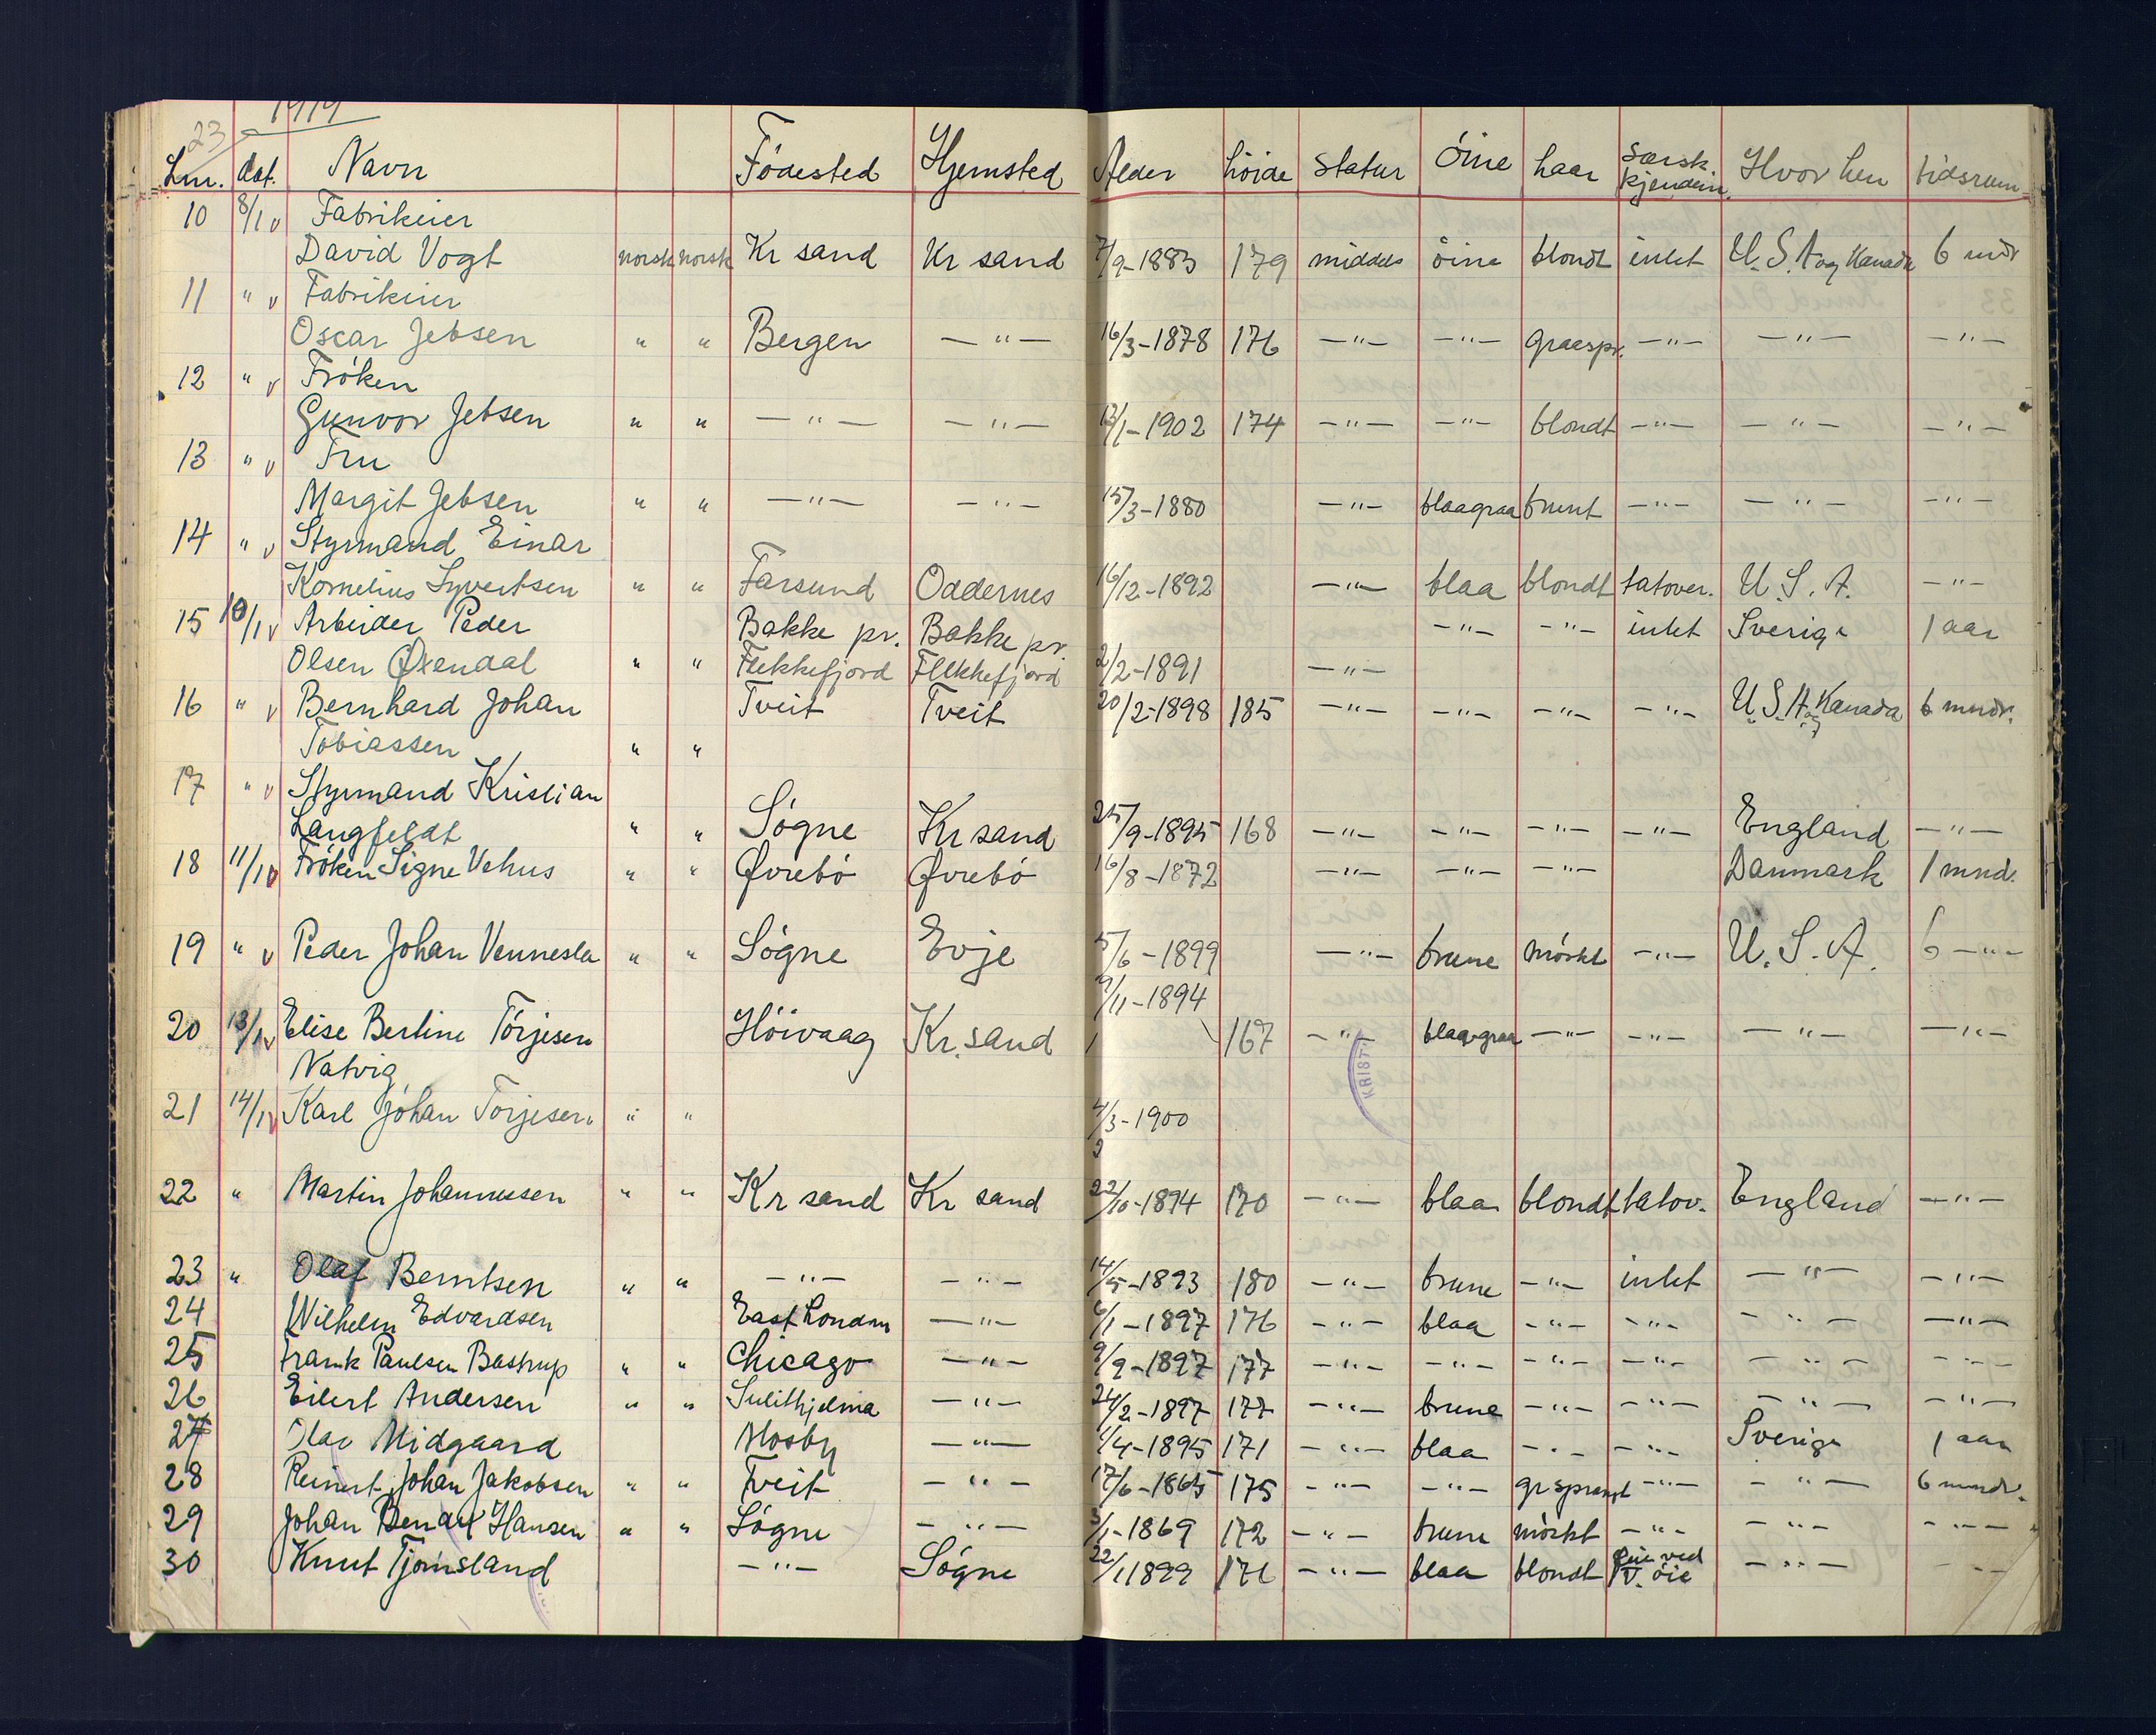 1919
23
Lnr. dat. Navn Födested Hjemsted Alder höide Statur Öine haar Særsk. kjendem. Hvor hen tidsrum
10 8/1 v Fabrikeier
David Vogt norsk norsk Kr sand Kr sand 7/9-1883 179 middels öine blondt intet U.S.A og Kanada 6 mdr
11 " v Fabrikeier
Oscar Jebsen " " Bergen —"— 16/3-1878 176 —"— —"— graaspr. —"— —"— —"—
12 " v Fröken
Gunvor Jebsen " " —"— —"— 12/1-1902 174 —"— —"— blondt —"— —"— —"—
13 " v Fru
Margit Jebsen " " —"— —"— 15/3-1880 —"— blaagraa brunt —"— —"— —"—
14 " v Styrmand Einar
Kornelius Syvertsen " " Farsund Oddernes 16/12-1892 —"— blaa blondt tatover. U.S.A. —"—
15 10/1 v Arbeider Peder Bakke pr. Bakke pr. —"— —"— intet Sverige 1 aar
Olsen Øxendal " " Flekkefjord Flekkefjord 2/2-1891 —"—
16 " v Bernhard Johan Tveit Tveit 20/2-1898 185 —"— —"— —"— —"— U.S.A. og Kanada 6 mndr.
Tobiassen " "
17 " v Styrmand Kristian
Langfeldt " " Sögne Kr sand 25/9-1895 168 —"— —"— —"— —"— England —"—
18 11/1 v Fröken Signe Vehus " " Øvrebö Øvrebö 16/8-1872 —"— —"— —"— Danmark 1 mnd.
19 " v Peder Johan Vennesla " " Sögne Evje 5/6-1899 —"— brune mörkt —"— U.S.A. 6 —"—
9/11-1894
20 13/1 v Elise Bertine Törjesen Höivaag Kr. sand 167 —"— blaagraa —"— —"— —"— —"—
Natvig
KRIST
21 14/1 v Karl Johan Torjesen " " 4/3-1900
22 " Martin Johannessen " " Kr sand Kr sand 22/10-1894 170 —"— blaa blondt tatov. England —"—
23 " Olaf Berntsen " " —"— —"— 14/5-1893 180 —"— brune —"— intet —"— —"—
24 Wilhelm Edvardsen East London —"— 6/1-1897 176 —"— blaa —"— —"— —"— —"—
25 Frank Paulsen Bastrup " " Chicago —"— 9/9-1897 177 —"— —"— —"— —"— —"— —"—
26 Eilert Andersen " " Sulithjelma —"— 24/2-1897 177 —"— brune —"— —"— —"— —"—
27 Olav Midgaard Mosby —"— 1/4-1895 171 —"— blaa —"— —"— Sverige 1 aar
28 Reinert Johan Jakobsen " " Tveit —"— 17/6-1865 175 —"— —"— grsprengt —"— —"— 6 mndr.
29 Johan Hansen " " Sögne —"— 3/1-1869 172 —"— brune mörkt —"— —"— —"—
30 Knut Tjomsland —"— Sögne 22/1 1899 171 —"— blaa blondt ved v. öie —"— —"—